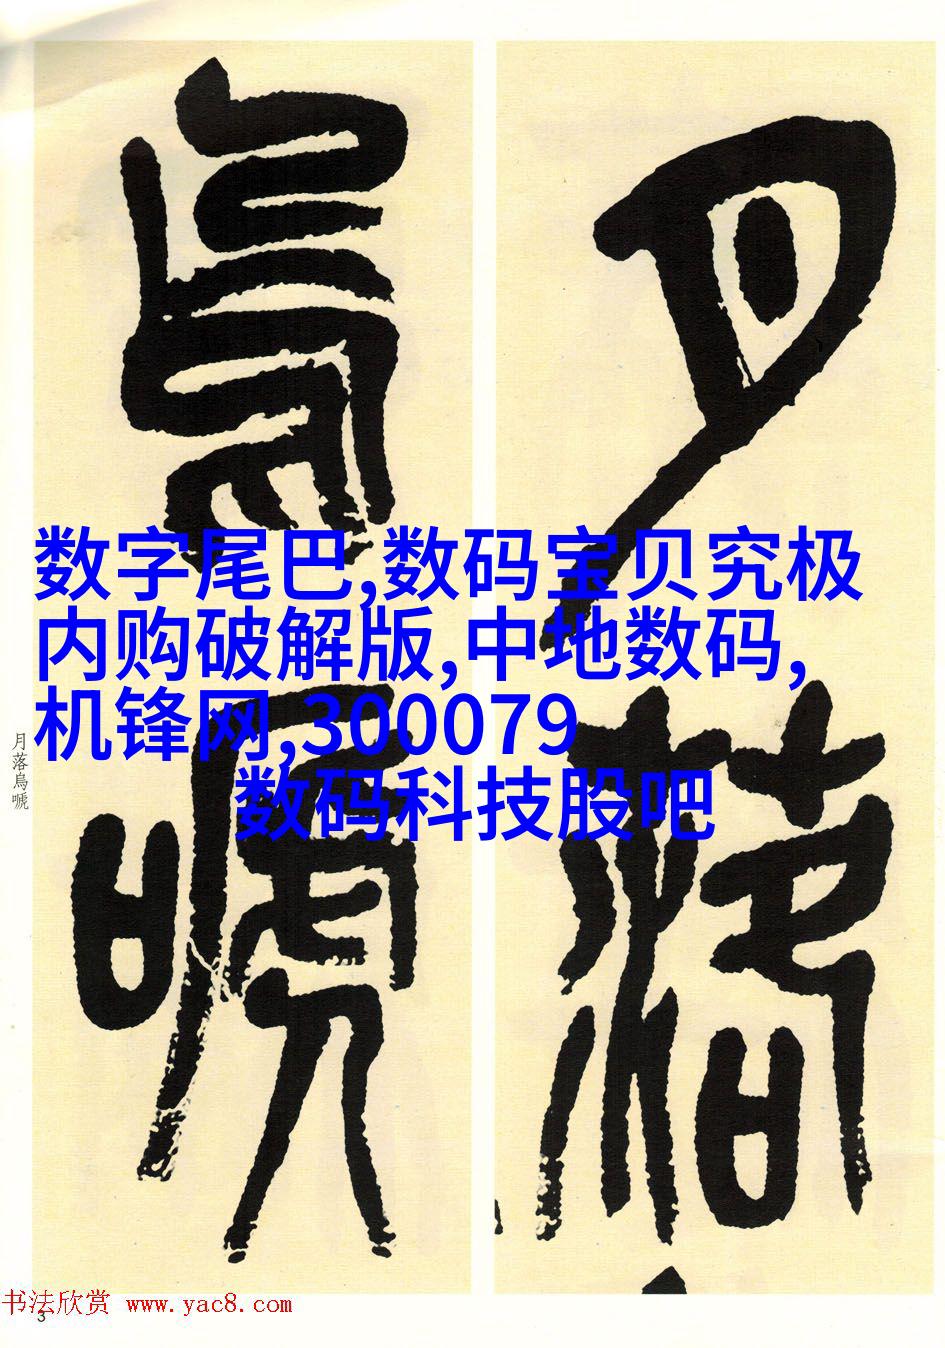 月落烏嗁
数字尾巴,数码宝贝究极
内购破解版,中地数码,
机锋网,300079
数码科技股吧
月落烏嗁
书法欣赏 www.yac8.com
3